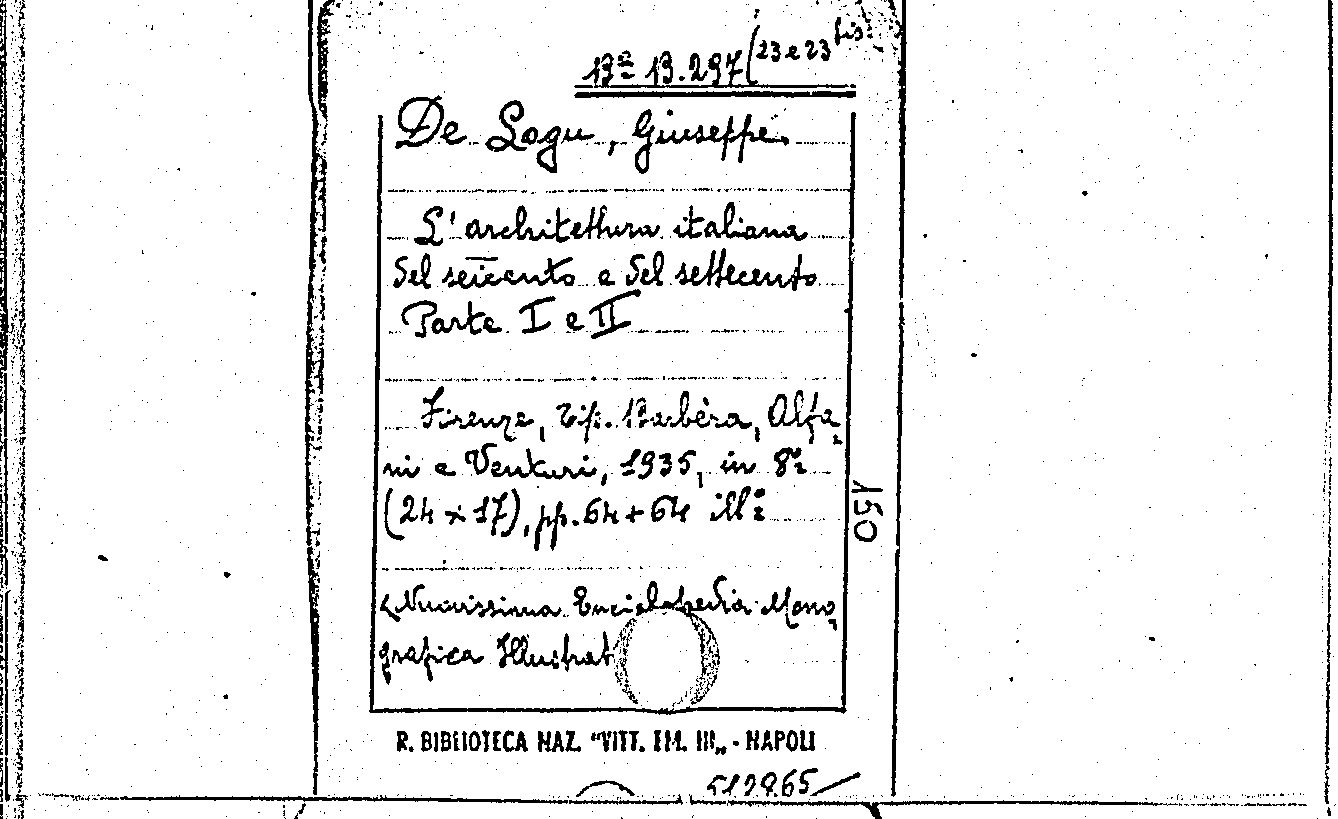 Bª B.297 (23 e 23 bis.
De Logu, Giuseppe.
L'architettura italiana
del seicento e del settecento
Parte I e II
Firenze, Tip. Barbèra, Alfa=
ni e Venturi, 1935, in 8º
(24 x 17), pp. 64 + 64 ill.
150
Nuovissima Enciclopedia Mono=
grafica Illustrat
R. BIBLIOTECA NAZ. "VITT. EM. III„ - NAPOLI
512865